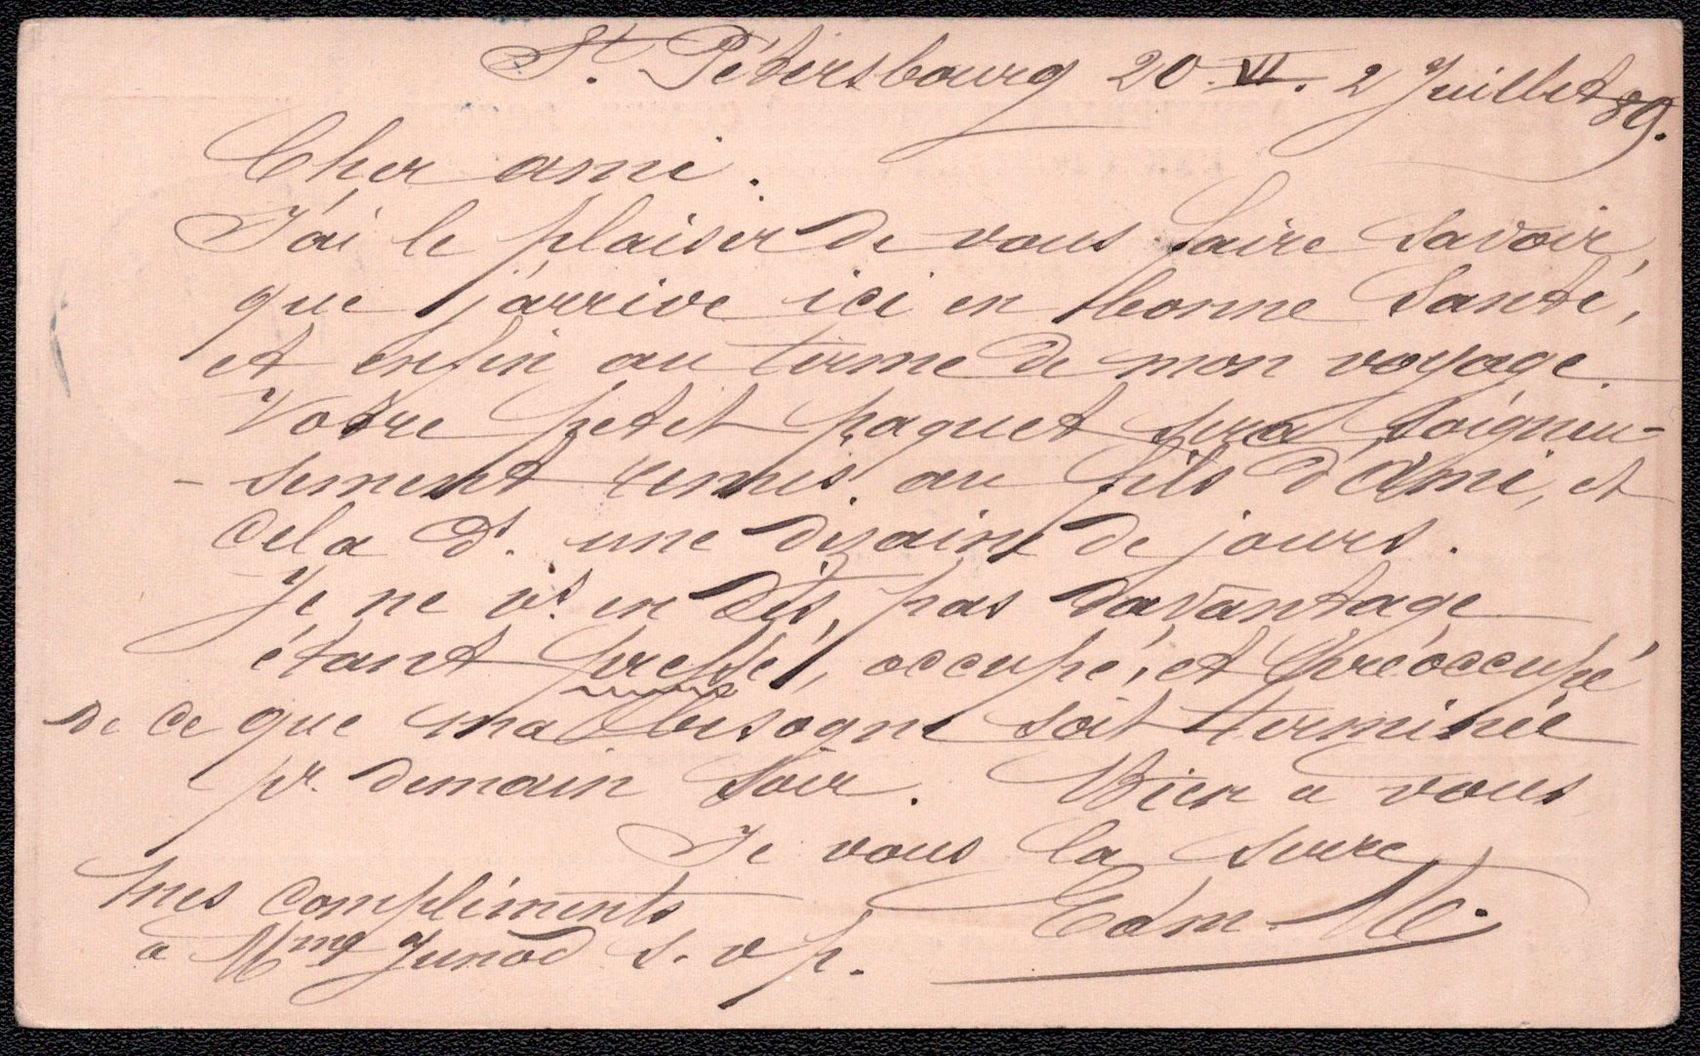 St. Pétersbourg 20 VI. 2 Juillet 89.
Cher ami.
J'ai le plaisir de vous faire savoir,
que j'arrive ici en bonne santé,
et enfin au terme de mon voyage.
Votre petit paquet sera soigneu-
-sement remis au fils d'Ami, et
cela ds. une dizaine de jours.
Je ne vs. en dis, pas davantage
étant pressé, occupé, et préoccupé
de ce que ma besogne soit terminée
pr. demain soir. Bien à vous
Je vous la serre
mes compliments
à Mme Junod s. v p.
Edm. M.